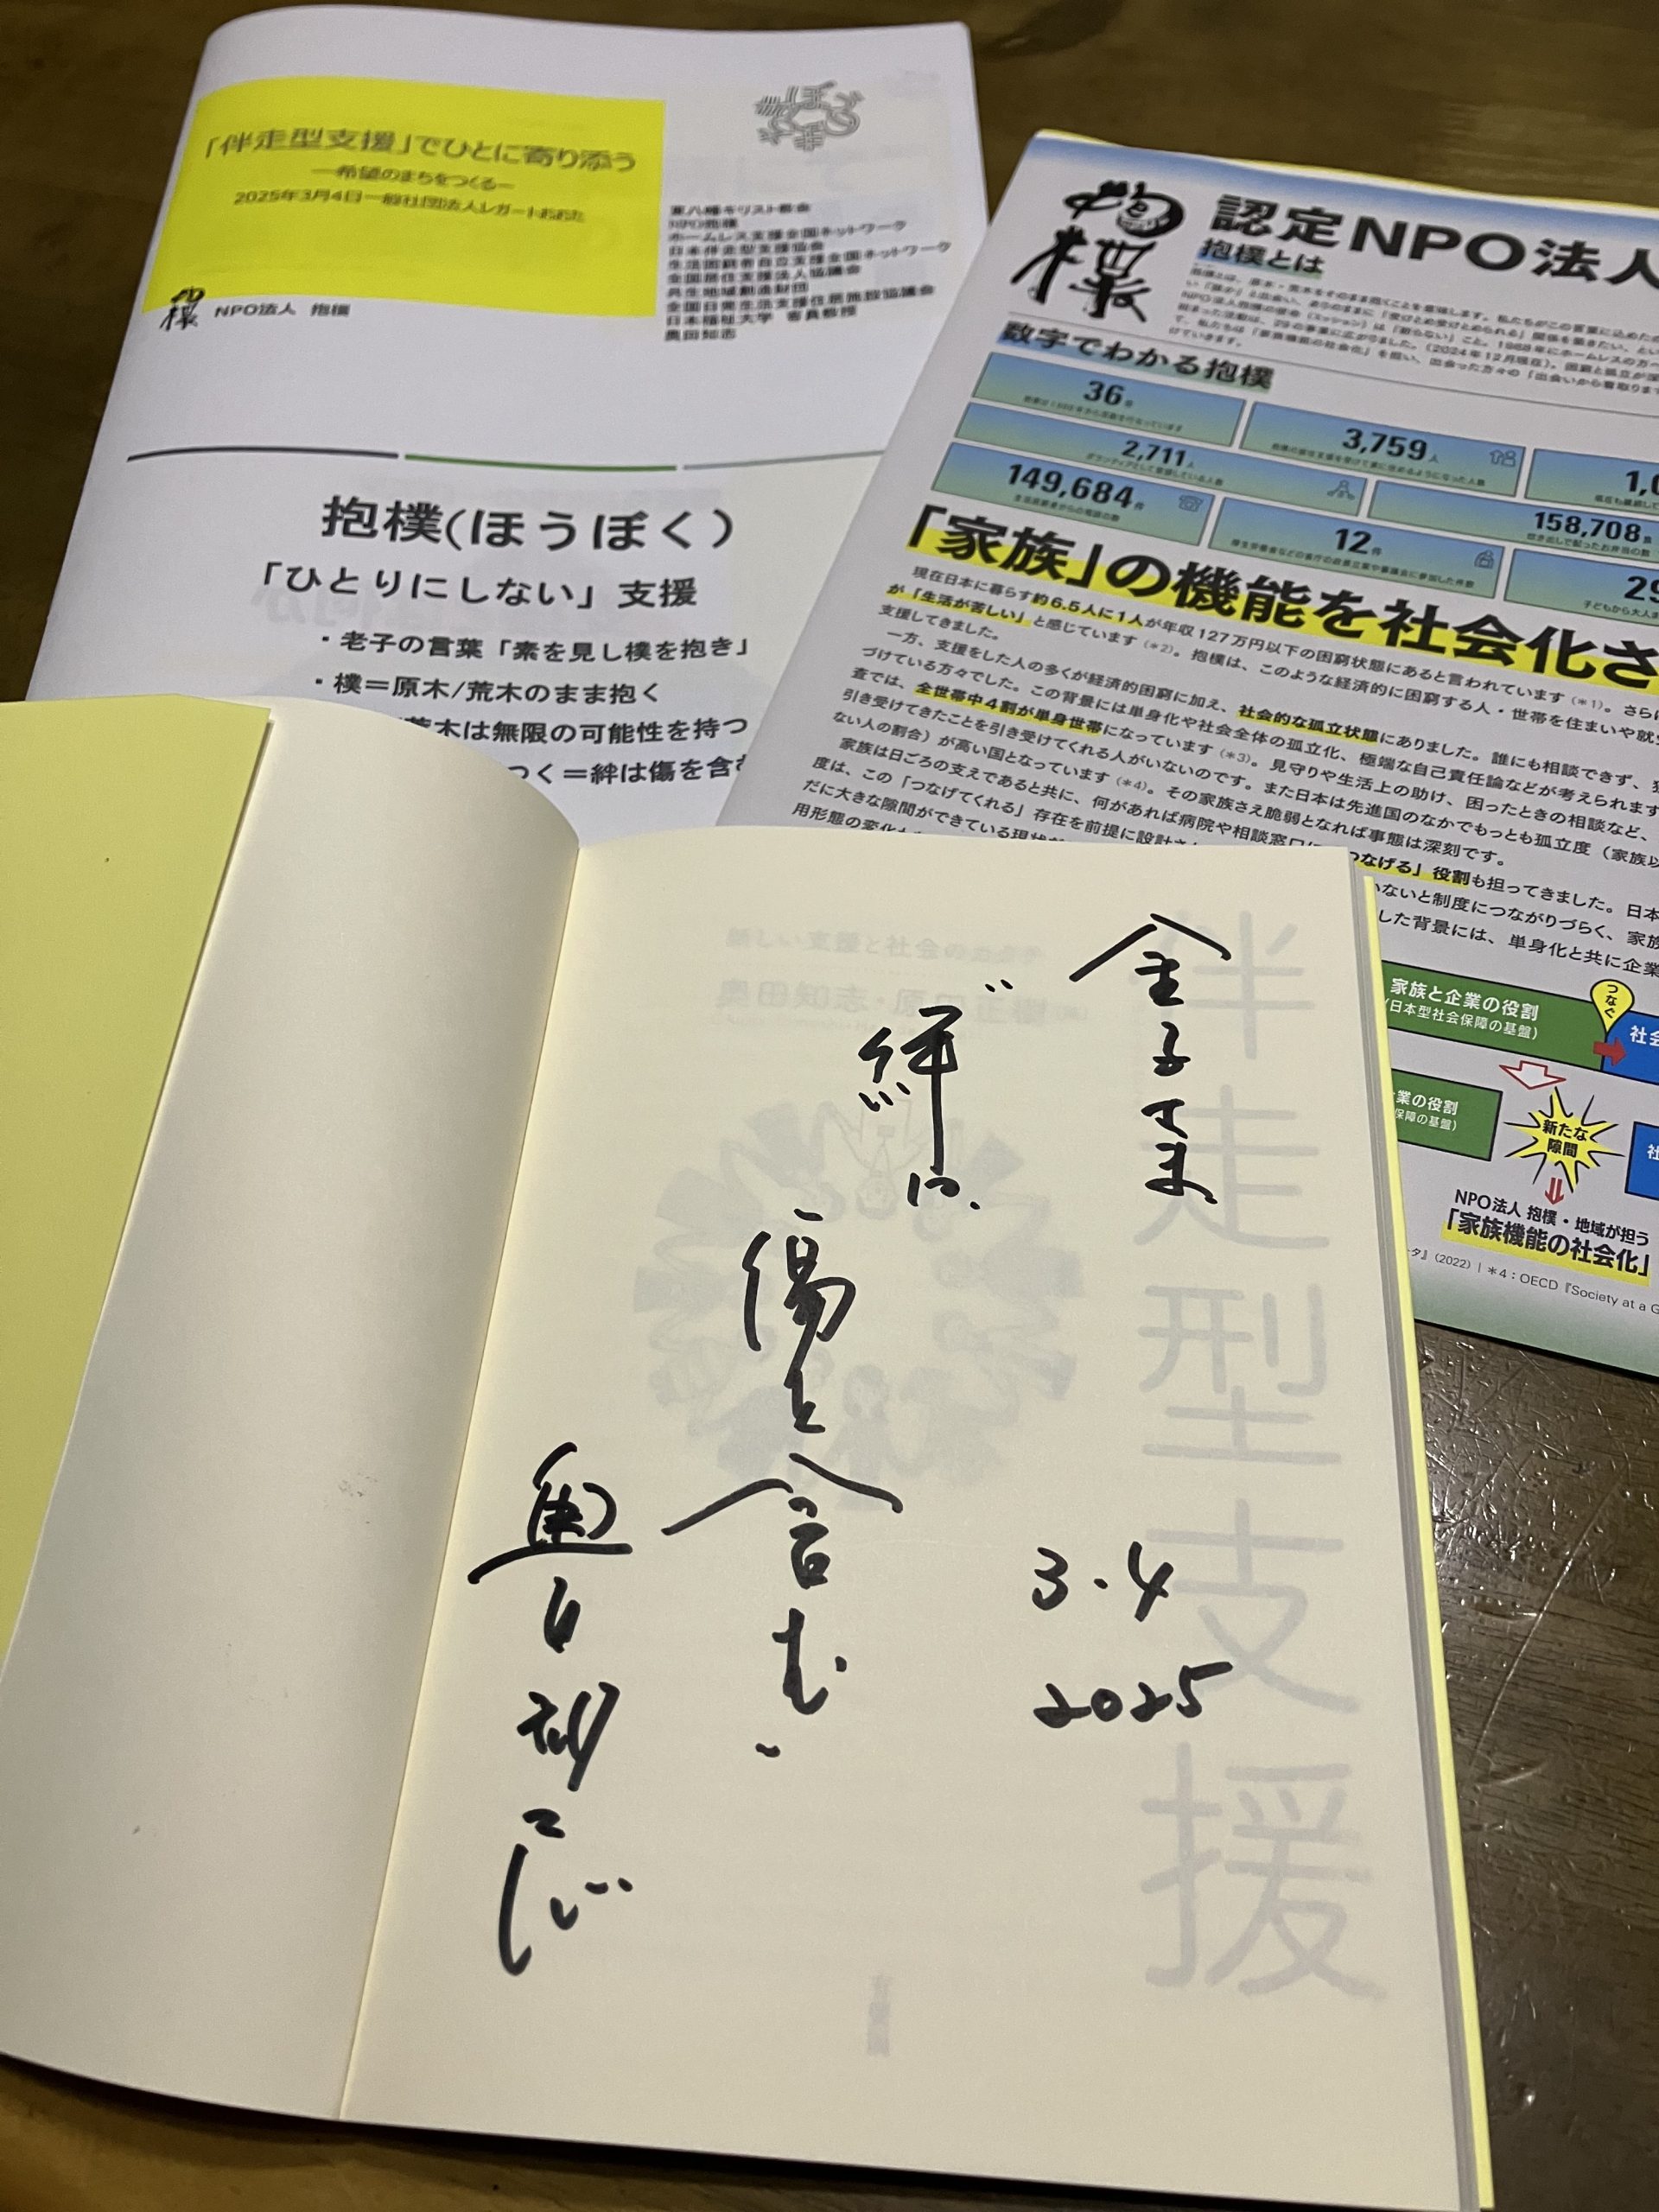 「伴走型支援」でひとに寄り添う
―希望のまちをつくる―
2025年3月4日一般社団法人レガートおおた
NPO法人 抱樸
東八幡キリスト教会
NPO抱樸
ホームレス支援全国ネットワーク
日本伴走型支援協会
生活困窮者自立支援全国ネットワーク
全国居住支援法人協議会
共生地域創造財団
全国日常生活支援住居施設協議会
日本福祉大学 客員教授
奥田知志
抱樸(ほうぼく)
「ひとりにしない」支援
・老子の言葉「素を見し樸を抱き」
・樸=原木/荒木のまま抱く
荒木は無限の可能性を持つ
つく=絆は傷を含む
抱樸
認定NPO法人
抱樸とは
数字でわかる抱樸
36
3,759人
2,711人
149,684件
12件
158,708食
「家族」の機能を社会化さ
現在日本に暮らす約6.5人に1人が年収127万円以下の困窮状態にあると言われています(*1)。さらに
が「生活が苦しい」と感じています(*2)。抱樸は、このような経済的に困窮する人・世帯を住まいや就
支援してきました。
一方、支援をした人の多くが経済的困窮に加え、社会的な孤立状態にありました。誰にも相談できず、
づけている方々でした。この背景には単身化や社会全体の孤立化、極端な自己責任論などが考えられます
査では、全世帯中4割が単身世帯になっています(*3)。見守りや生活上の助け、困ったときの相談など、
引き受けてきたことを引き受けてくれる人がいないのです。また日本は先進国のなかでもっとも孤立度(家族以
ない人の割合)が高い国となっています(*4)。その家族さえ脆弱となれば事態は深刻です。
家族は日ごろの支えであると共に、何があれば病院や相談窓口に「つなげる」役割も担ってきました。日本
度は、この「つなげてくれる」存在を前提に設計さ
いないと制度につながりづらく、家族
だに大きな隙間ができている現状
した背景には、単身化と共に企業
用形態の変化
家族と企業の役割
(日本型社会保障の基盤)
つなぐ
社会
業の役割
保障の基盤)
新たな
隙間
NPO法人 抱樸・地域が担う
「家族機能の社会化」
タ』(2022) | *4:OECD『Society at a G
金子さま
"絆は、
傷を含む"
奥田知志
3.4
2025
伴走型支援
新しい支援と社会のカタチ
奥田知志・原田正樹